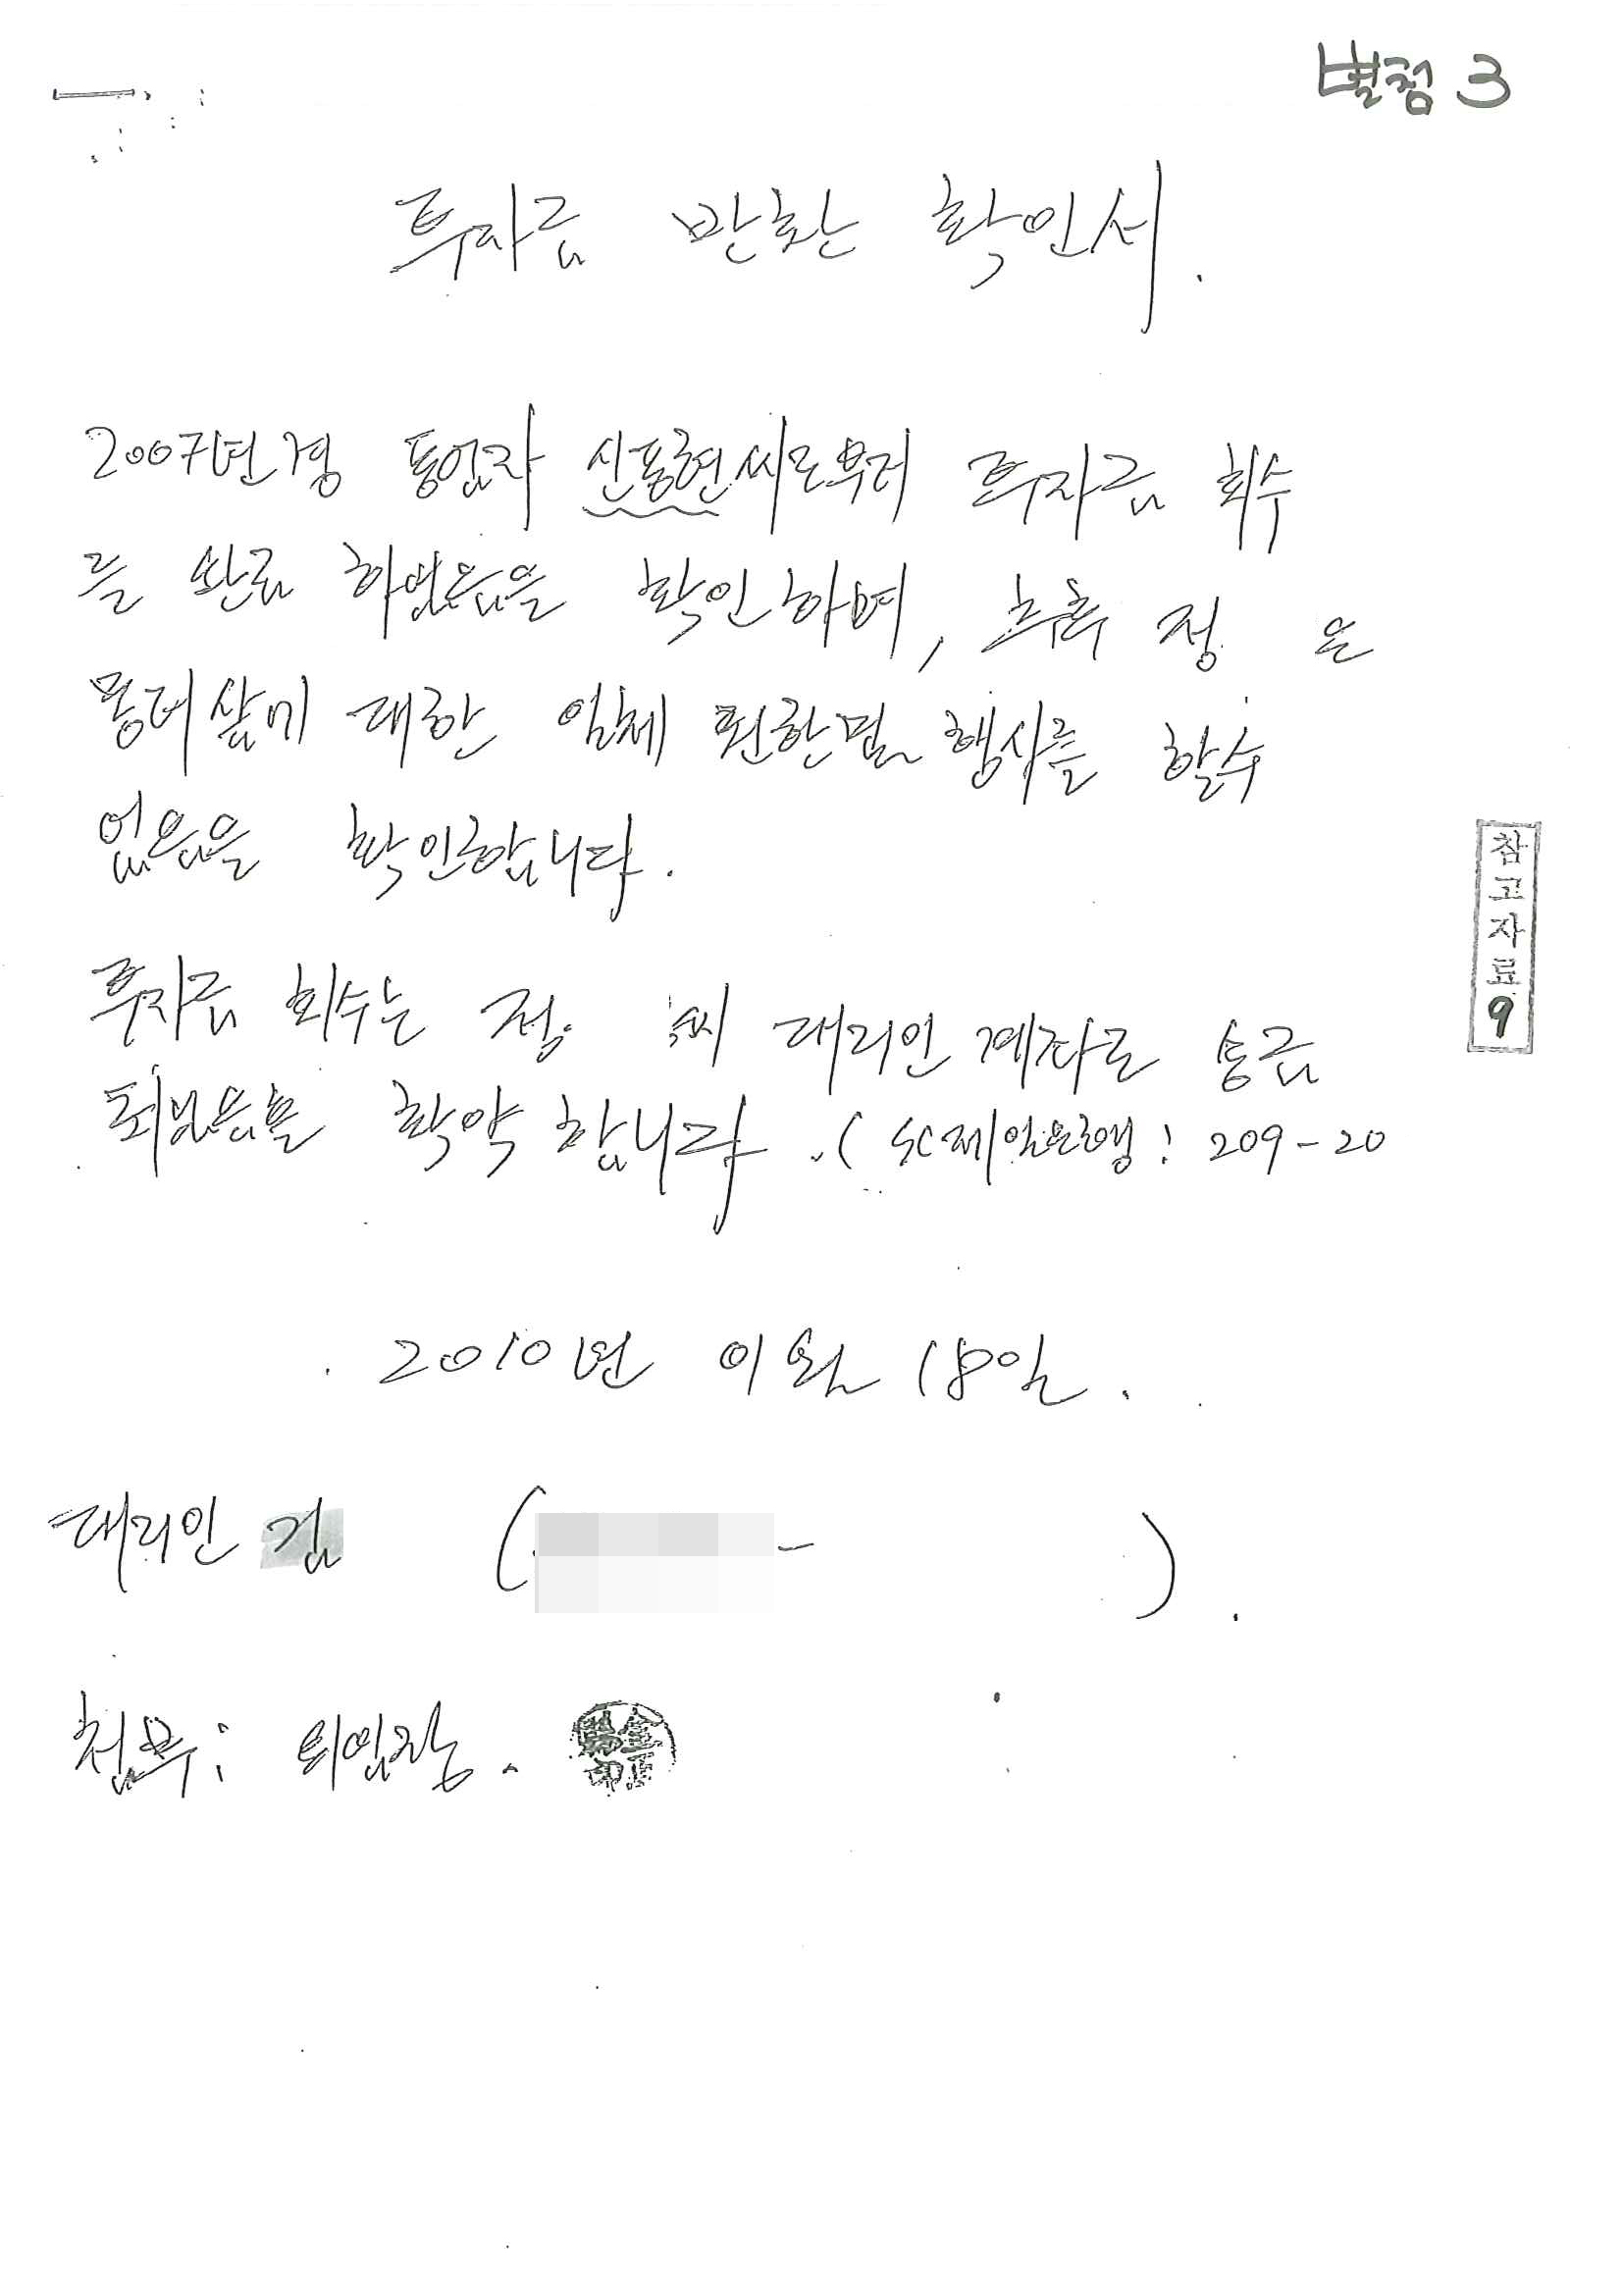 별첨 3
투자금 반환 확인서.
2007년경 동업자 신동현씨로부터 투자금 회수
를 완료 하였음을 확인하며, 추후 정 은
대한 일체 권한및 행사를 할수
없음을 확인합니다.
투자금 회수는 정 씨 대리인 계좌로 송금
되었음을 확약 합니다. (SC제일은행: 209-20
2010년 01월 18일.
대리인 김 ( - ).
첨부: 위임장.
참고자료
9